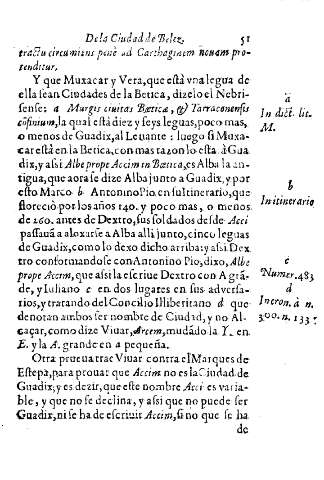 De la Ciudad de Belez. 51
tractu circumiens penè ad Carthaginem novam pro-
tenditur.
Y que Muxacar y Vera, que està vna legua de
ella sean Ciudades de la Betica, dizelo el Nebri-
sense: a Murgis ciuitas Bætica, & Tarraconensis
a
In dict. lit.
M.
cõfinium, la qual està diez y seys leguas, poco mas,
o menos de Guadix, al Leuante: luego si Muxa-
car està en la Betica, con mas razon lo està a Gua-
dix, y assi Albe prope Accim in Bætica, es Alba la an-
tigua, que aora se dize Alba junto a Guadix, y por
esto Marco b Antonino Pio en su Itinerario, que
b
In itinerario
floreciò por los años 140. y poco mas, o menos
de 260. antes de Dextro, sus soldados desde Acci
passauã a aloxarse a Alba alli junto, cinco leguas
de Guadix, como lo dexo dicho arriba: y assi Dex
tro conformandose con Antonino Pio, dixo, Albe
prope Accim, que assi la escriue Dextro con A grã-
c
Numer. 483
de, y Iuliano c en dos lugares en sus aduersa-
rios, y tratando del Concilio Illiberitano d que
d
In cron. à n.
300. n. 133.
denotan ambos ser nombre de Ciudad, y no Al-
caçar, como dize Viuar, Arcem, mudãdo la I. en
E. y la A. grande en a pequeña.
Otra prueua trae Viuar contra el Marques de
Estepa, para prouar que Accim no es la Ciudad de
Guadix, y es dezir, que este nombre Acci es varia-
ble, y que no se declina, y assi que no puede ser
Guadix, ni se ha de escriuir Accim, si no que se ha
de